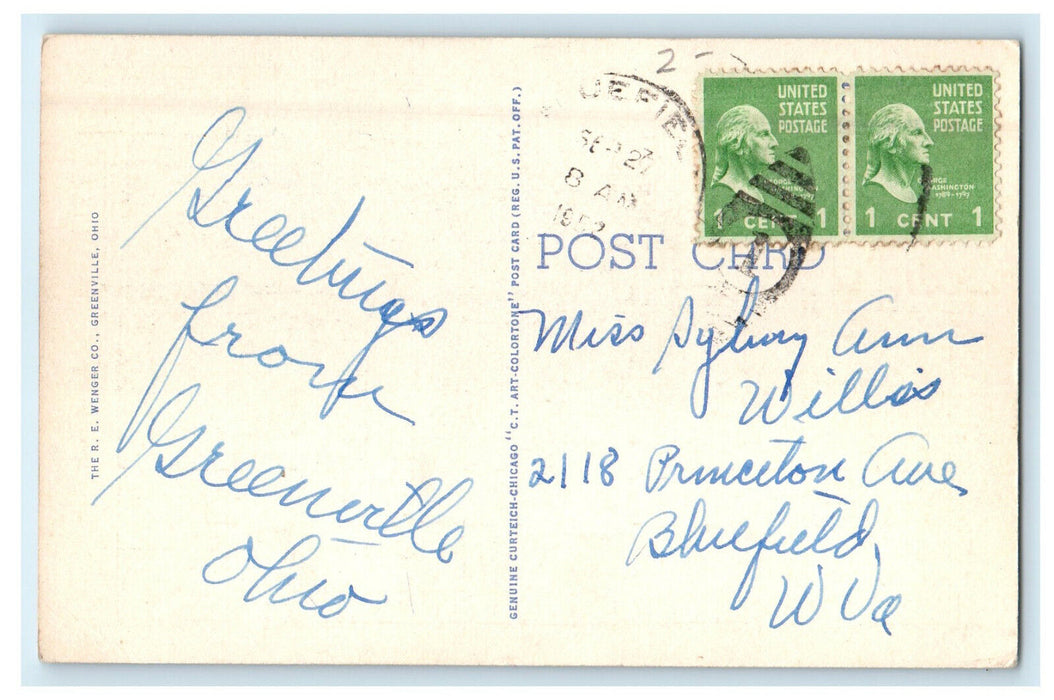 2-
UEFIE
SEP 27
8 AM
1952
UNITED
STATES
POSTAGE
GEORGE
WASHINGTON
1 CENT 1
UNITED
STATES
POSTAGE
GEORGE
WASHINGTON
1789-1797
1 CENT 1
POST CARD
Greetings
from
Greenville
Ohio
THE R. E. WENGER CO., GREENVILLE, OHIO
GENUINE CURTEICH-CHICAGO "C.T. ART-COLORTONE" POST CARD (REG. U.S. PAT. OFF.)
Miss Ann
Willis
2118 Princeton Ave
Bluefield,
W Va